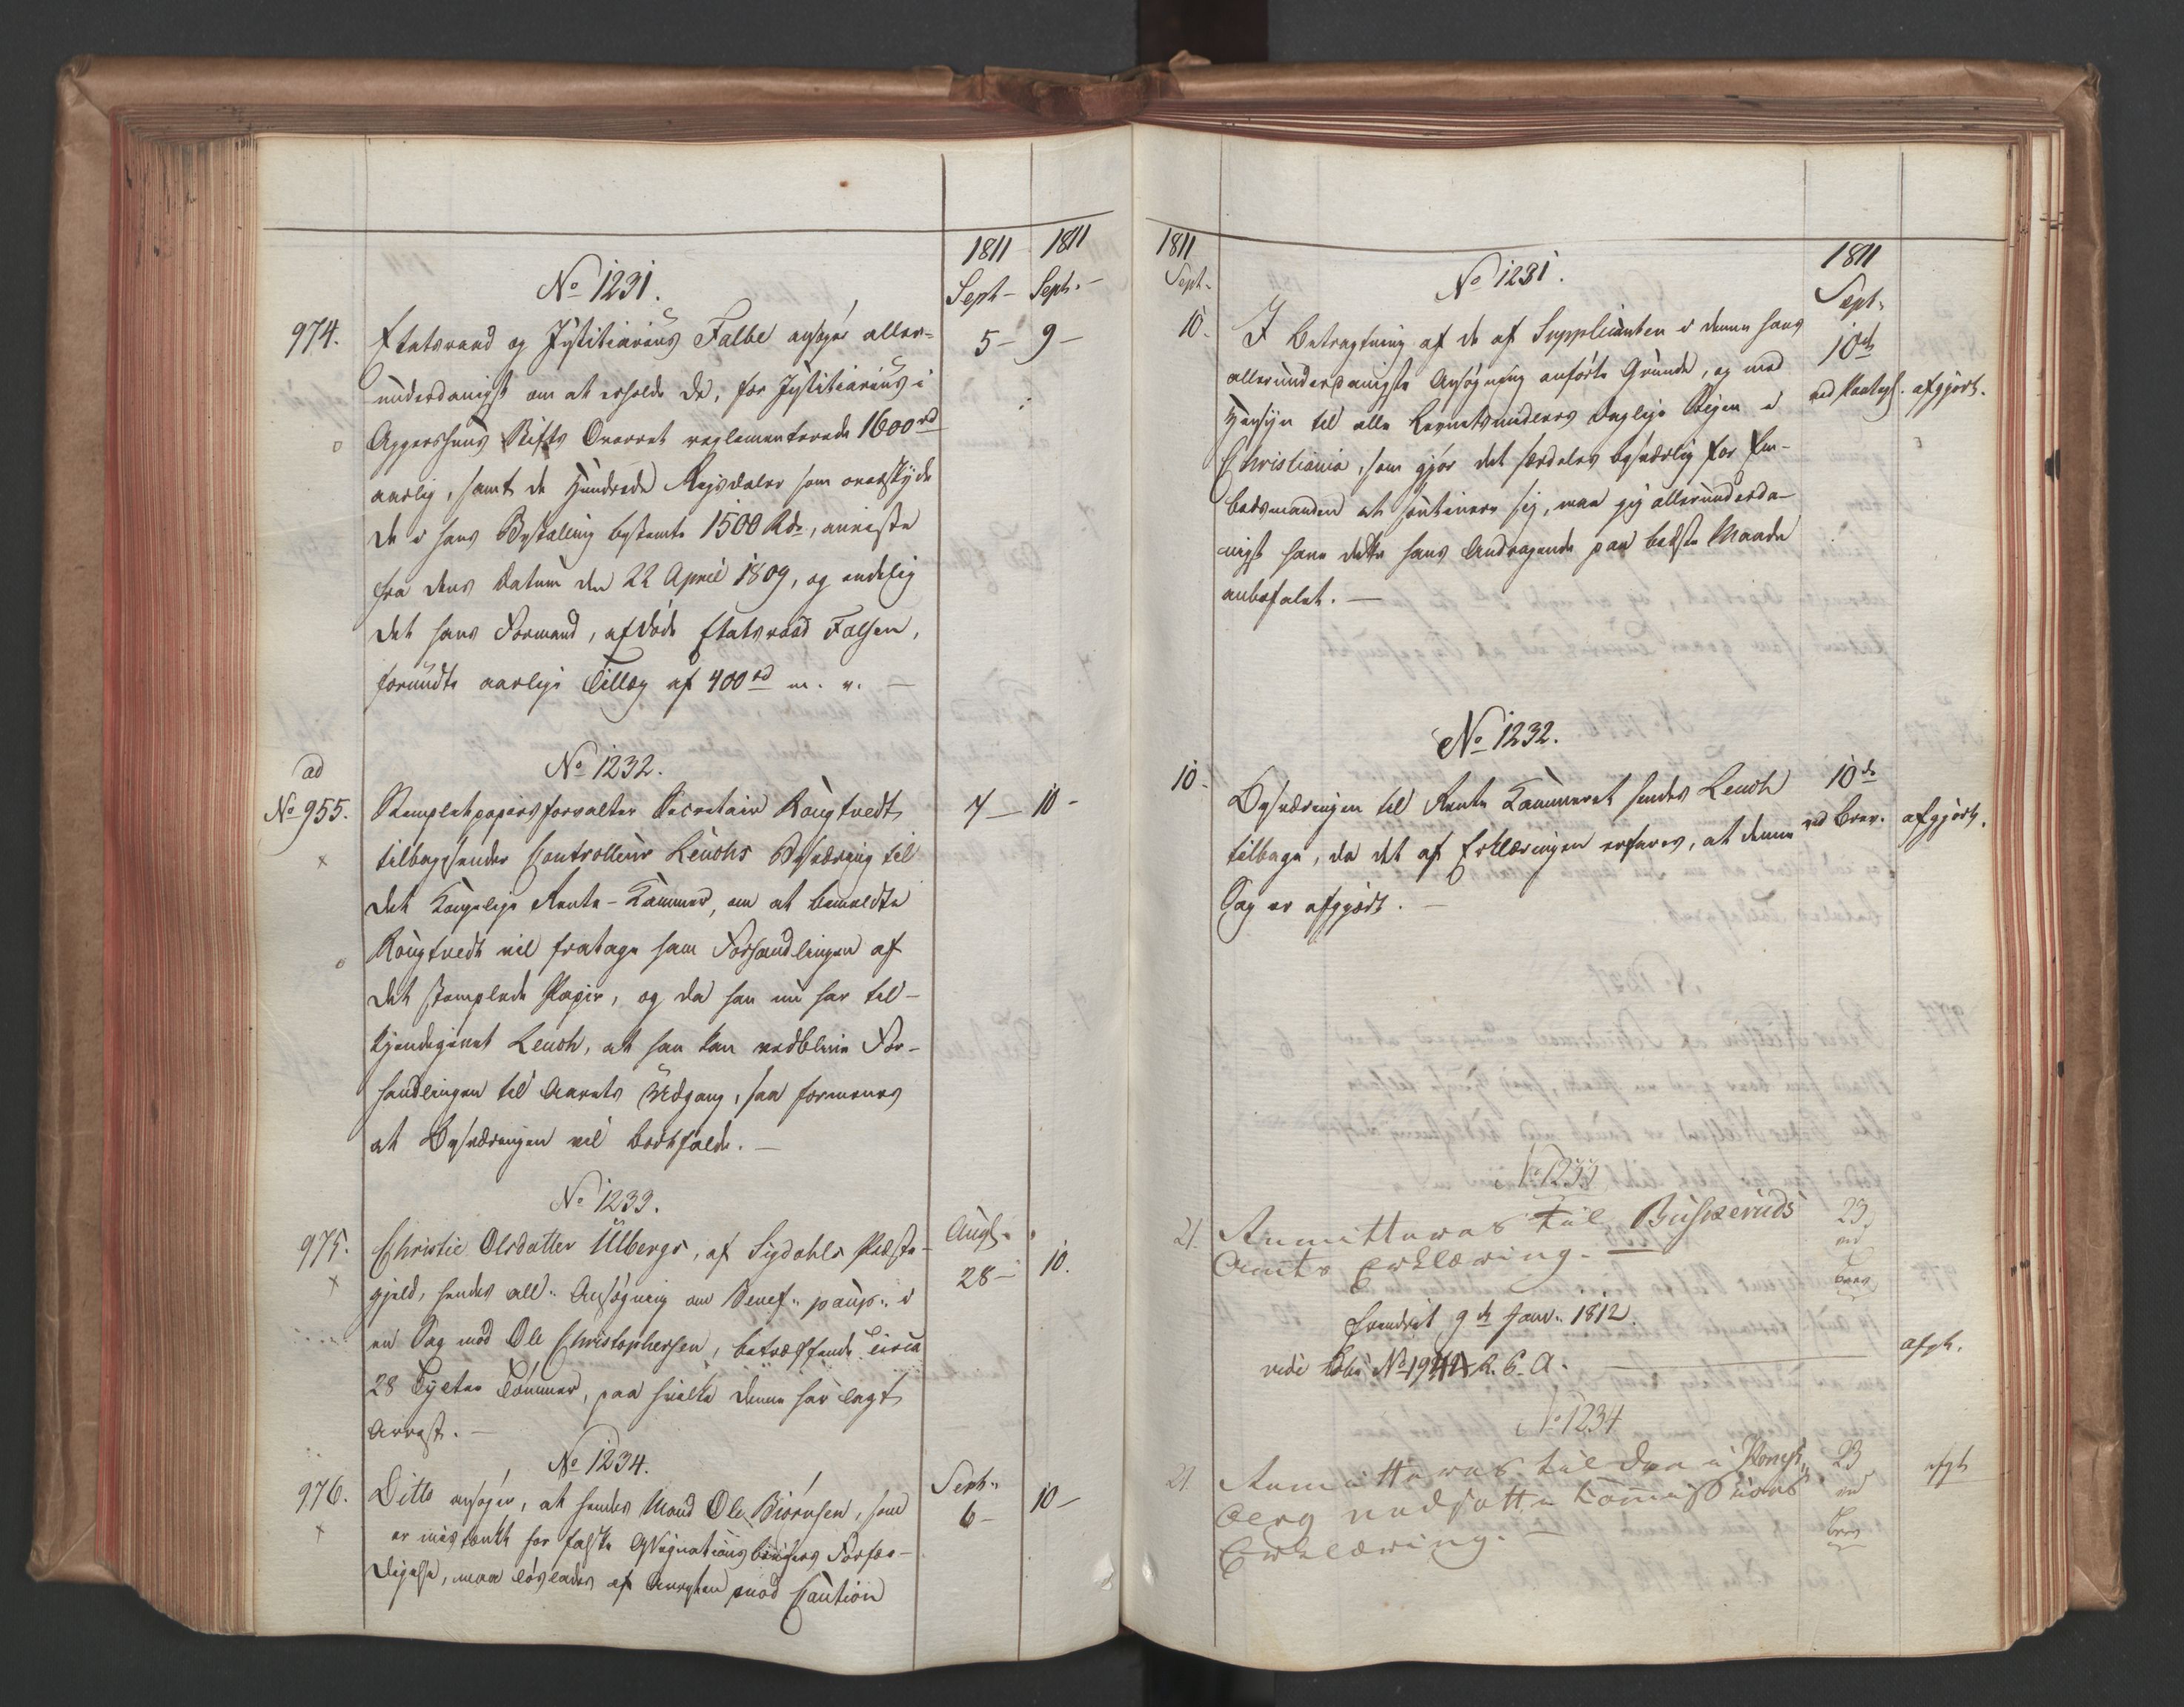 1811 1811
Sept - Sept. -
No 1231.
974. Etatsraad og Justitiarius Falbe ansøger aller- 5 - 9 -
underdanigst om at erholde de, for Justitiarius i
Aggershuus Stifts Overret reglementerede 1600 rd
aarlig, samt de Hundrede Rigsdaler som overskyde
de i hans Bestalling bestemte 1500 Rdr, anviste
fra dens Datum den 22 April 1809, og endelig
det hans Formand, afdøde Etatsraad Falsen,
forundte aarlige Tillæg af 400 rd m. v. -
ad
No 1232.
No 955. Stempletpapiirsforvalter Secretair Rougtvedt 7 - 10 -
tilbagesender Controlleur Leuchs Besværing til
det Kongelige Rente-Kammer, om at bemeldte
Rougtvedt vil fratage ham Forhandlingen af
det stemplede Papir, og da han nu har til-
kjendegivet Leuch, at han kan vedblive For-
handlingen til Aarets Udgang, saa formenes
at Besværingen vil bortfalde. -
No 1233.
975. Christie Olsdatter Ulbergs, af Sigdahls Præste- Augt. 28 - 10.
gjeld, sendes all. Ansøgning om Benef. paup. i
en Sag mod Ole Christophersen, betræffende circa
28 Tylter Tømmer, paa hvilke denne har lagt
Arrest. -
No 1234.
976. Ditto ansøger, at hendes Mand Ole Biørnsen, som Sept. 6 - 10 -
er mistænkt for falske Assignationsbeviisers Forfær-
digelse, maa løslades af Arresten mod Caution
1811 1811
Sept. Sept.
No 1231.
10. I Betragtning af de af Supplicanten i denne hans 10de
allerunderdanigste Ansøgning anførte Grunde, og med ved Paategn. afgjort.
Hensyn til alle Levnetsmidlers daglige Stigen i
Christiania, som gjør det særdeles besværlig for Em-
bedsmanden at soutinere sig, maa jeg allerunderda-
nigst have dette hans Andragende paa bedste Maade
anbefalet. -
No 1232.
10. Besværingen til Rente Kammeret sendes Leuch 10de
tilbage, da det af Erklæringen erfares, at denne ved Brev. afgjort.
Sag er afgjort. -
No 1233
21. Remitteres til Buskeruds 23
Amts Erklæring. - ved
Brev
Expedit 9de Janr. 1812.
vide No 1942 R. C. A. - afgt.
No 1234
21. Remitteres til den i Kongs- 23 afgt
berg nedsatte Commissions ved
Erklæring. Brev